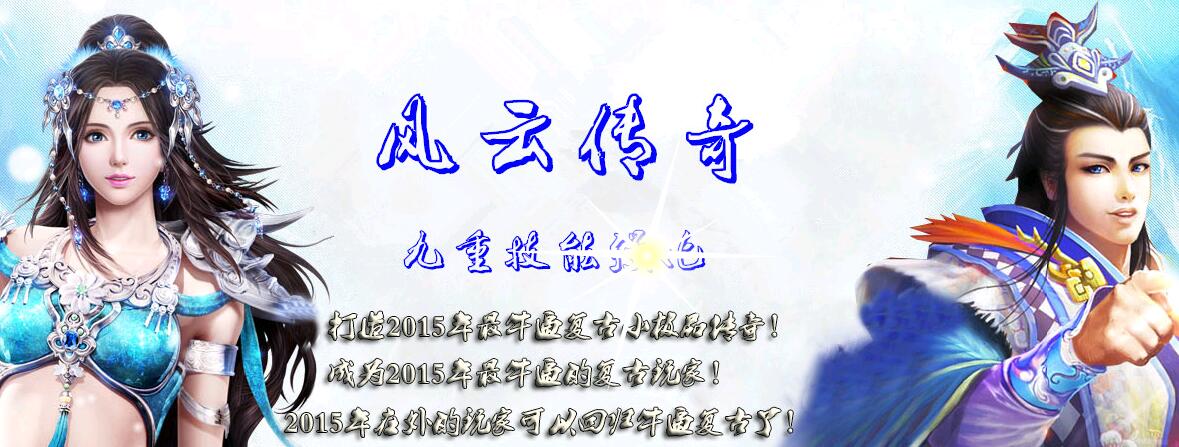 风云传奇
九重技能强化
打造2015年最牛逼复古小极品传奇!
成为2015年最牛逼的复古玩家!
2015年在外的玩家可以回归牛逼复古了!